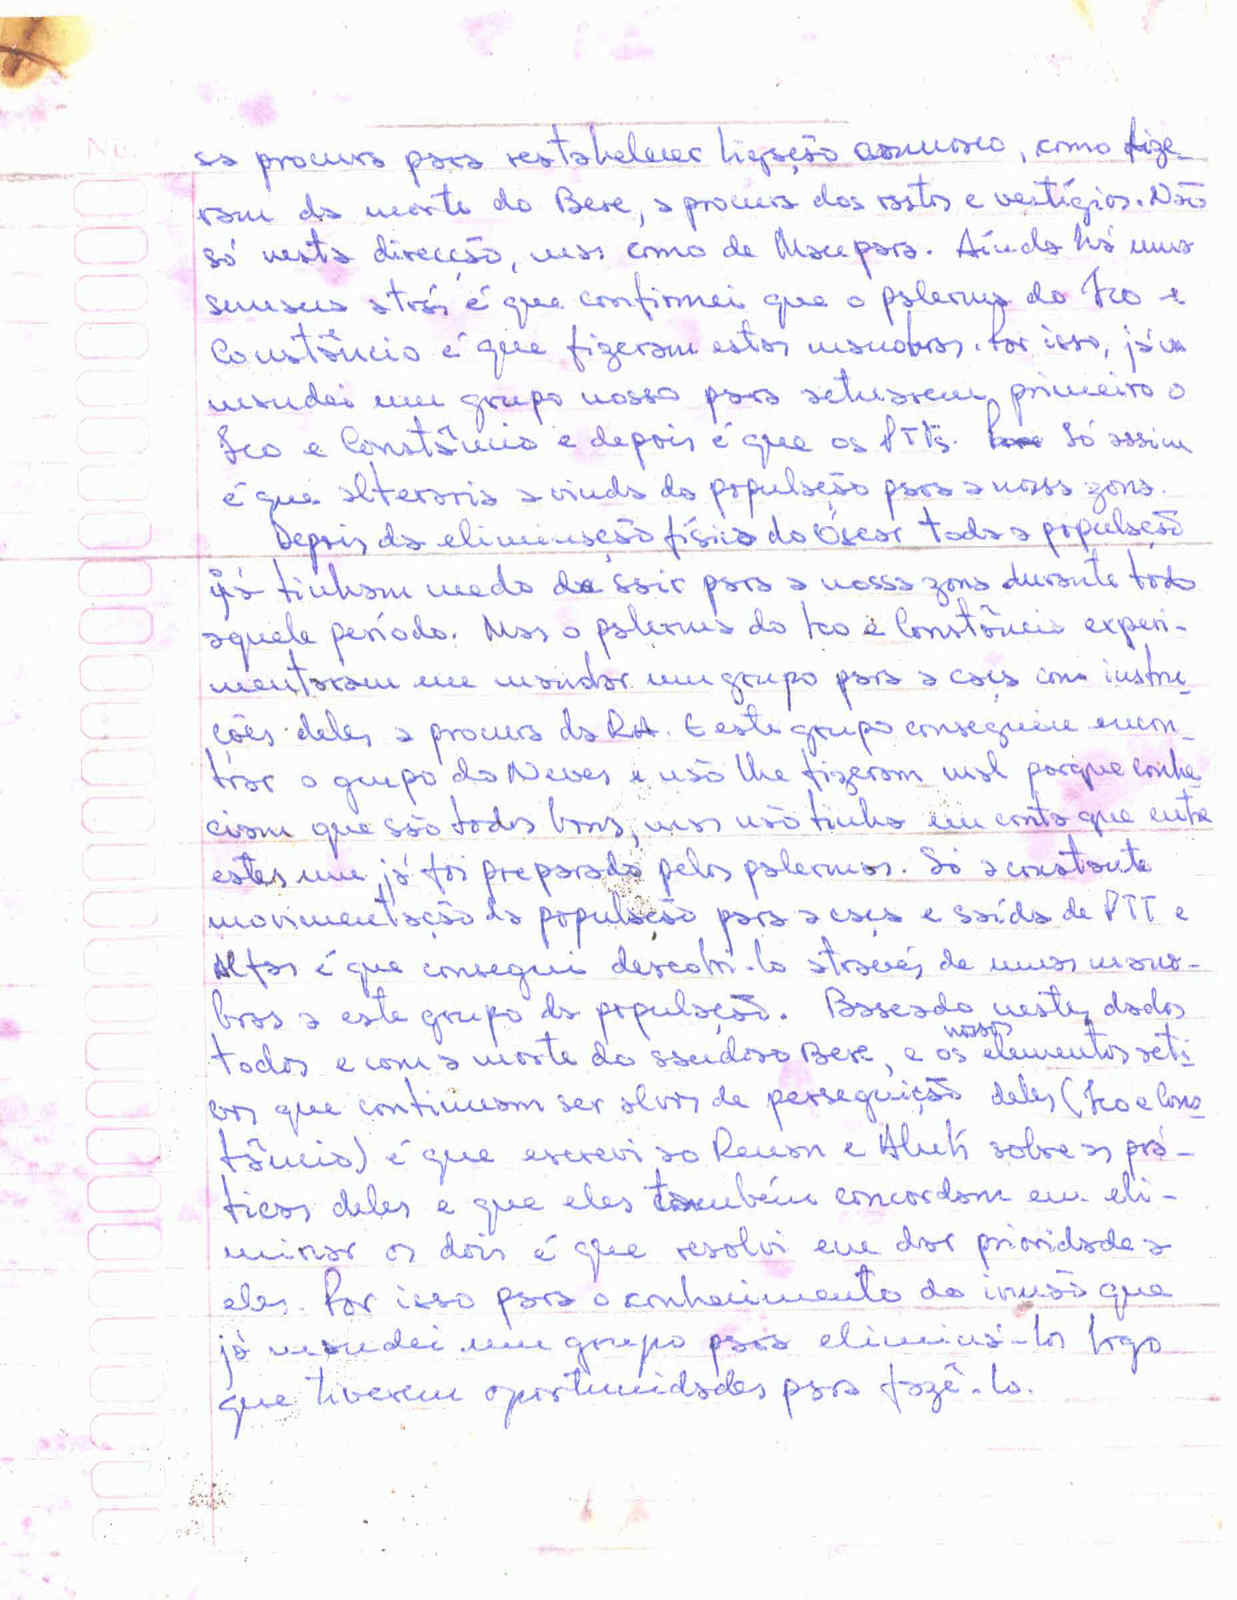 sa procura para restabelecer ligação connosco, como fize-
ram da morte do Bere, a procura dos rastos e vestígios. Não
só nesta direcção, mas como de Maupara. Ainda há uma
semana atrás é que confirmei que o palerma do Ico e
Constâncio é que fizeram estas manobras. Por isso, já
mandei um grupo nosso para actuarem primeiro o
Ico e Constâncio e depois é que os PTTs. Só assim
é que alteraria a vinda da população para a nossa zona.
Depois da eliminação física do Óscar toda a população
já tinham medo de sair para a nossa zona durante todo
aquele período. Mas o palerma do Ico e Constâncio experi-
mentaram em mandar um grupo para a caça com instru-
ções deles a procura da RA. E este grupo conseguiu encon-
trar o grupo do Neves e não lhe fizeram mal porque conhe-
ciam que são todos bons, mas não tinha em conta que entre
estes um já foi preparado pelos palermas. Só a constante
movimentação da população para a caça e saída de PTT e
Alfas é que consegui descobri-lo através de umas mano-
bras a este grupo da população. Baseado nestes dados
todos e com a morte do saudoso Bere, e os nossos elementos acti-
vos que continuam ser alvos de perseguição deles (Ico e Cons-
tâncio) é que escrevi ao Renan e Aluk sobre as prá-
ticas deles e que eles também concordam em eli-
minar os dois é que resolvi em dar prioridade a
eles. Por isso para o conhecimento do irmão que
já mandei um grupo para eliminá-los logo
que tiverem oportunidades para fazê-lo.